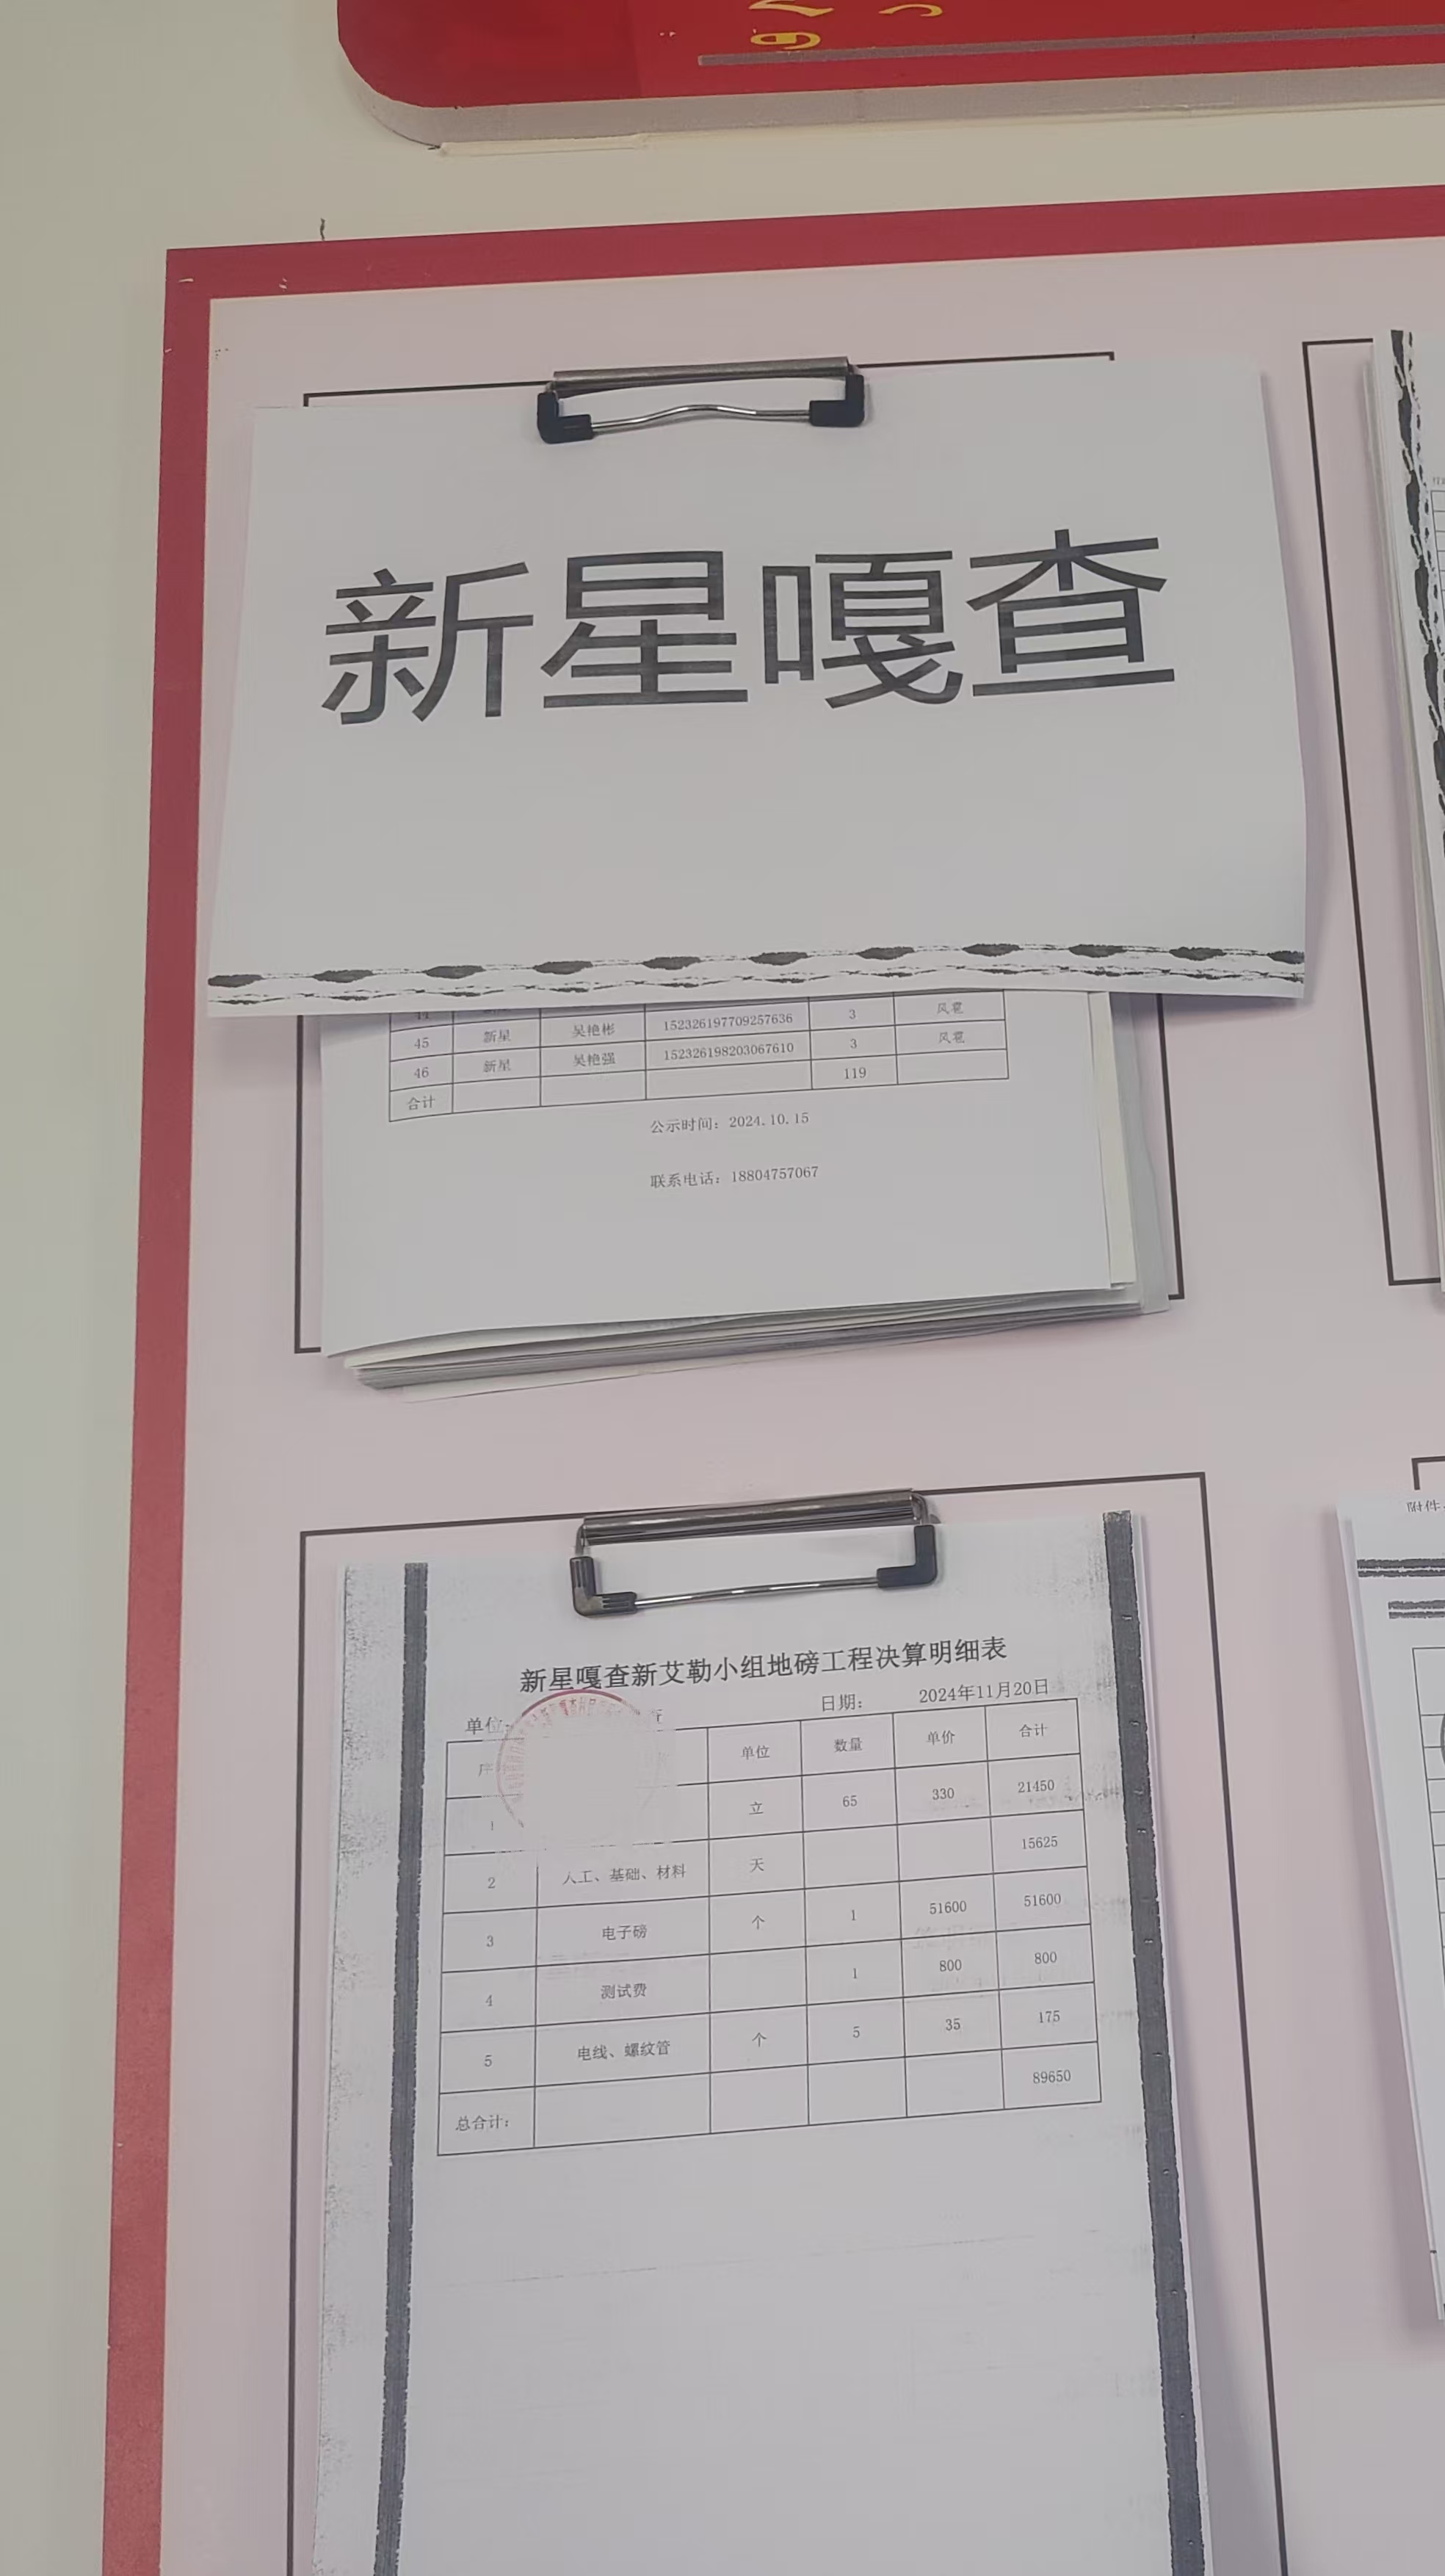 新星嘎查
45 新星 吴艳彬 152326197709257636 3 风雹
46 新星 吴艳强 152326198203067610 3 风雹
合计 119
公示时间：2024.10.15
联系电话：18804757067
新星嘎查新艾勒小组地磅工程决算明细表
单位 日期： 2024年11月20日
单位 数量 单价 合计
1 立 65 330 21450
2 人工、基础、材料 天 15625
3 电子磅 个 1 51600 51600
4 测试费 1 800 800
5 电线、螺纹管 个 5 35 175
总合计： 89650
附件